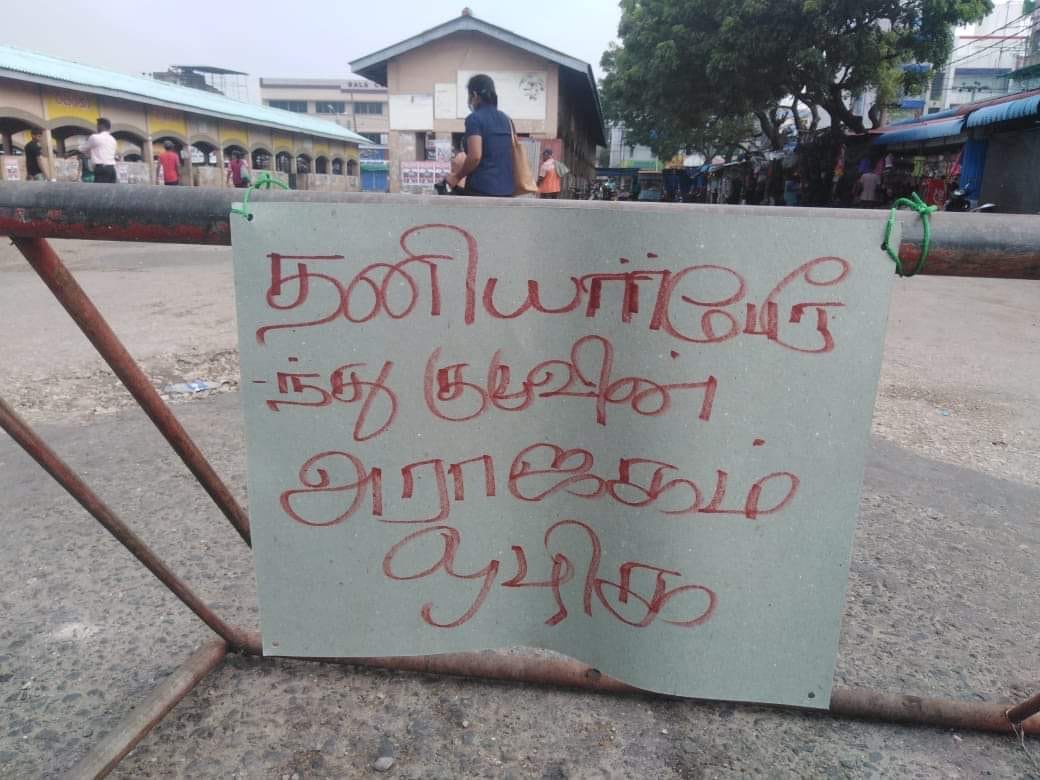 தனியார் பேரு
-ந்து குழுவின்
அராஜகம்
ஒழிக